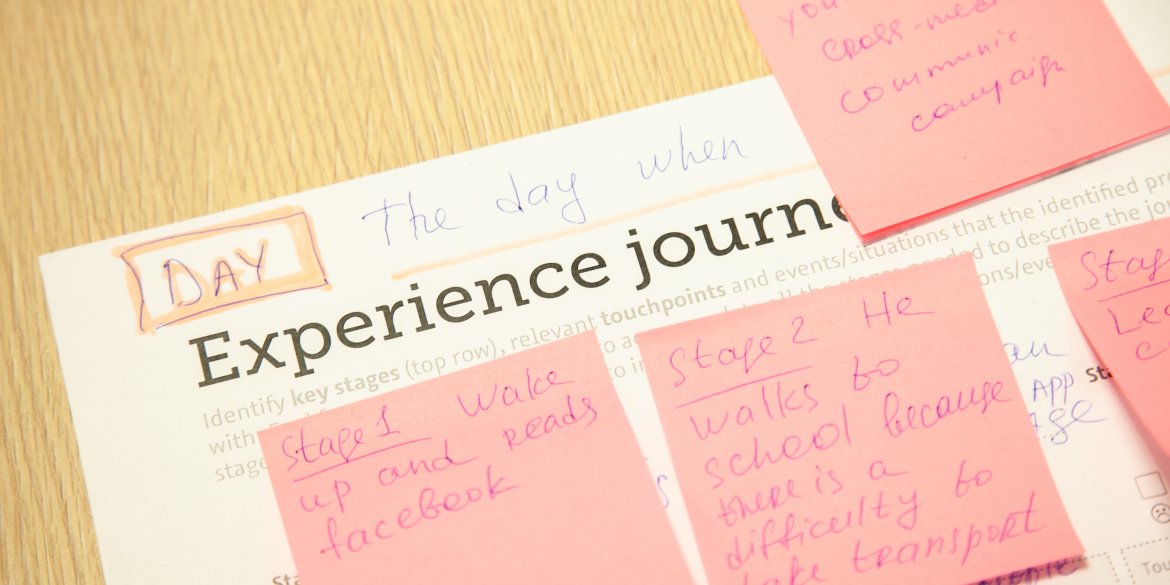 cross-med
communic.
campaign
The day when
DAY
Experience journe
Identify key stages (top row), relevant touchpoints and events/situations that the identified pr
with
stage
needed to describe the jou
ons/eve
Stage 1 Wake
up and reads
facebook
Stage 2 He
walks to
school because
there is a
difficulty to
take transport
Stag
Lea
an
APP
Sta
Tou